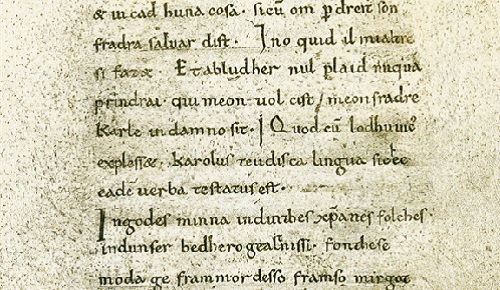 & in cad huna cosa. sicū om ꝑ dreit son
fradra saluar dist. Ino quid il mialtre
si faz&. Et abludher nul plaid nūquā
prindrai. qui meon uol cist / meon fradre
Karle in damno sit. Quod cū lodhuuic
expless&. karolus teudisca lingua sic hec
eadē uerba testatus est.
Ingodes minna indinthes xp̄anes folches.
indunser bedhero gealtnissi. fonthese
moda ge frammordesso. framso mirgot